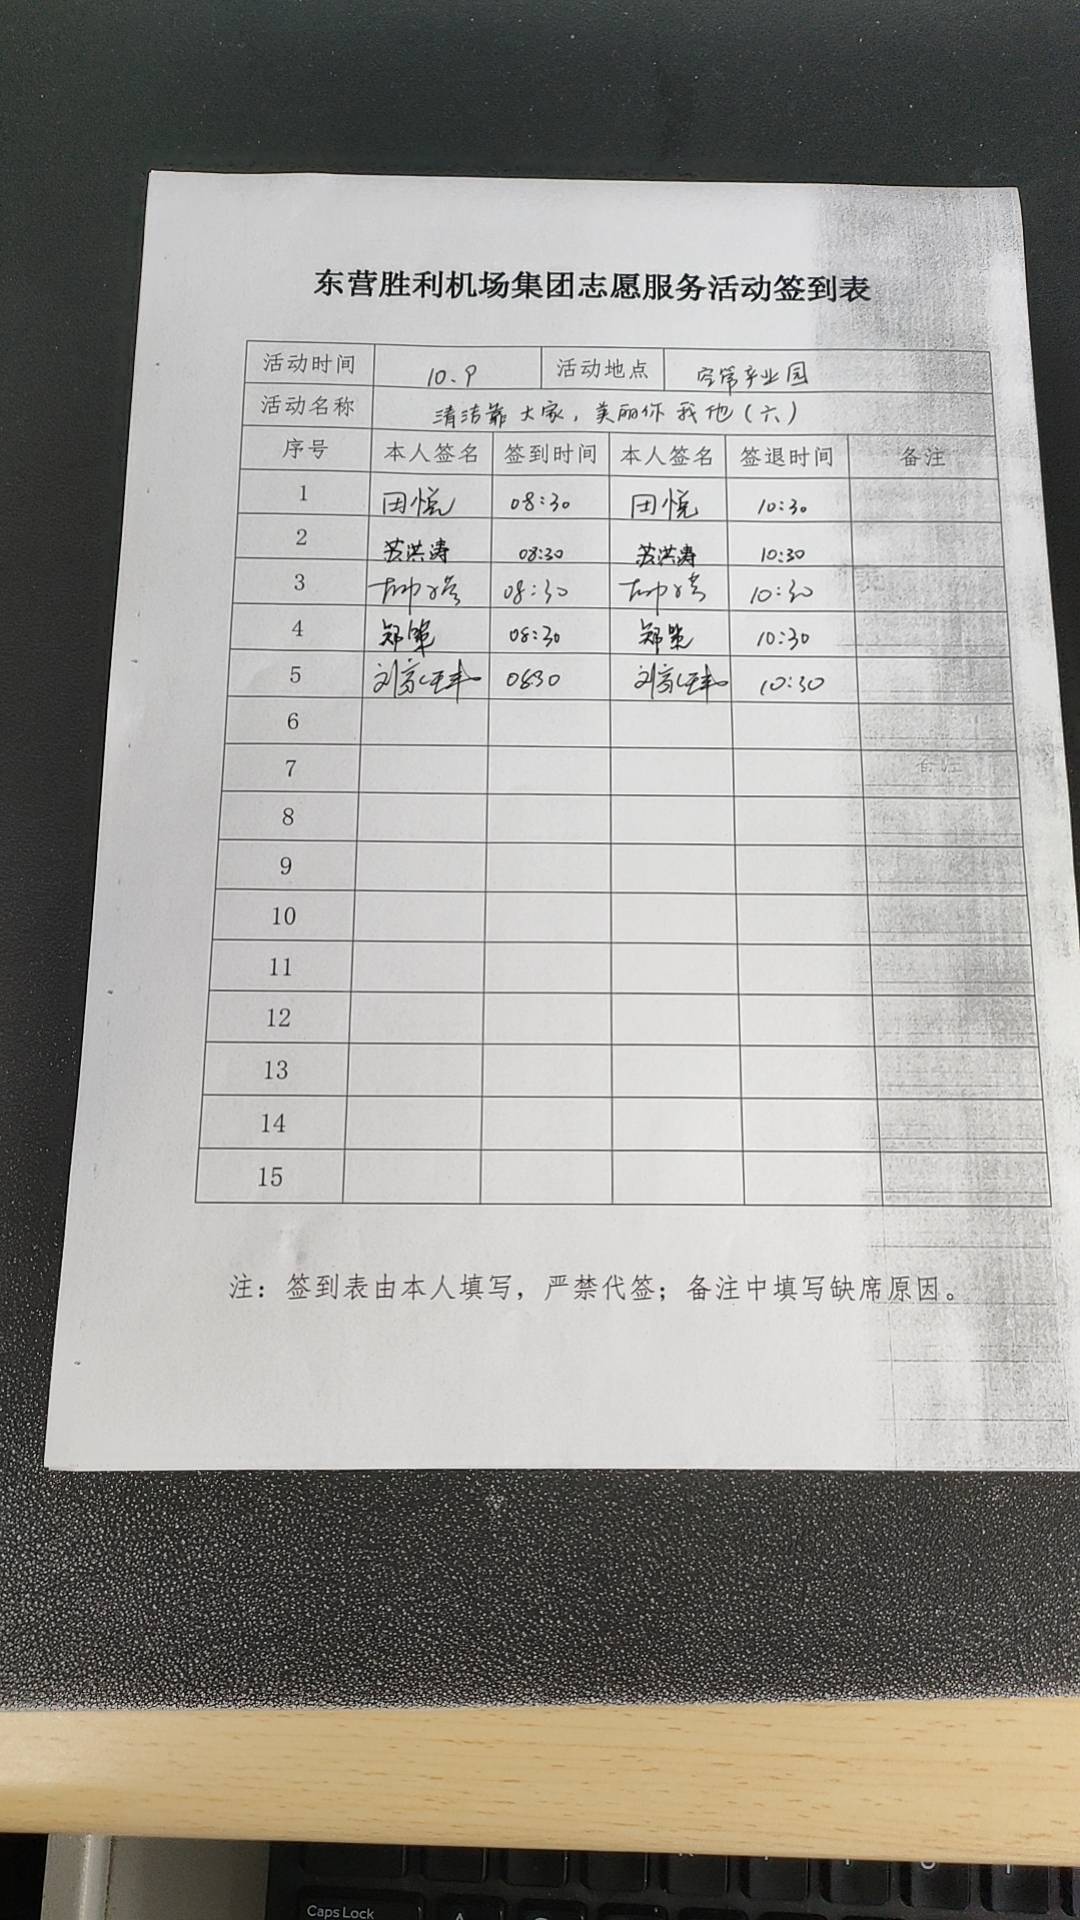 东营胜利机场集团志愿服务活动签到表
活动时间 10.9 活动地点 空管产业园
活动名称 清洁靠大家,美丽你我他(六)
序号 本人签名 签到时间 本人签名 签退时间 备注
1 田悦 08:30 田悦 10:30
2 苏洪涛 08:30 苏洪涛 10:30
3 08:30 10:30
4 郑策 08:30 郑策 10:30
5 0830 10:30
6
7 备注
8
9
10
11
12
13
14
15
注:签到表由本人填写,严禁代签;备注中填写缺席原因。
Caps Lock